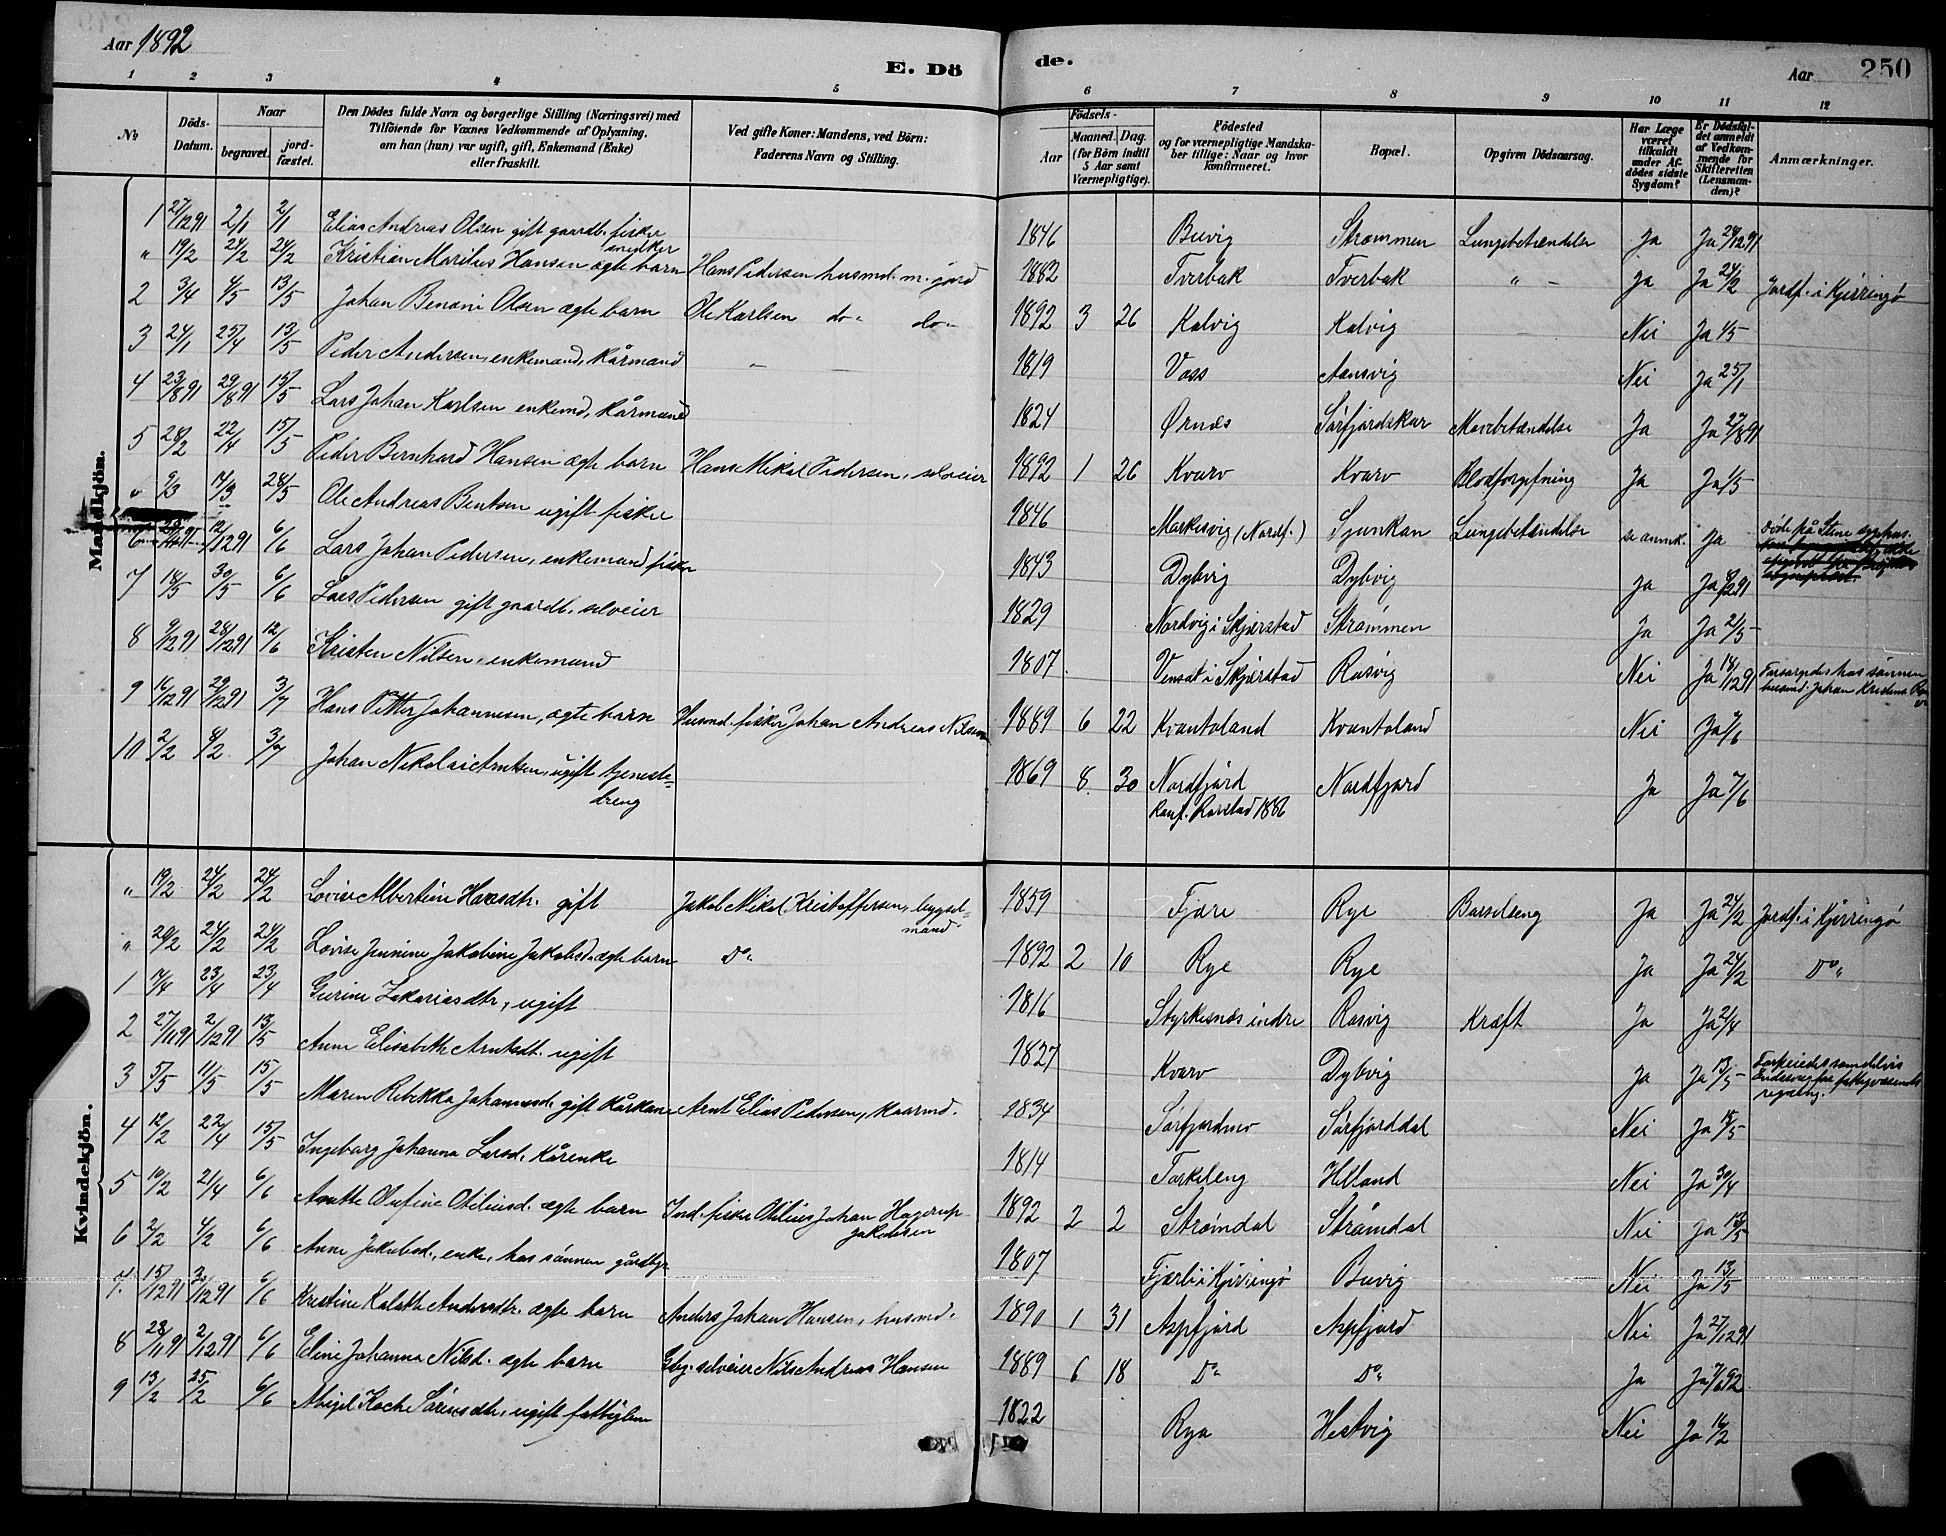 Aar 1892
E. Dö
de.
Aar
250
1 2 3 4 5 6 7 8 9 10 11 12
No
Döds-Datum.
Naar
begravet.
jord-fæstet.
Den Dödes fulde Navn og borgerlige Stilling (Næringsvei) med
Tilföiende for Voxnes Vedkommende af Oplysning,
om han (hun) var ugift, gift, Enkemand (Enke)
eller fraskilt.
Ved gifte Koner: Mandens, ved Börn:
Faderens Navn og Stilling.
Födsels-
Aar
Maaned. Dag.
(for Börn indtil
5 Aar samt
Værnepligtige).
Födested
og for værnepligtige Mandska-
ber tillige: Naar og hvor
konfirmeret.
Bopæl.
Opgiven Dödsaarsag.
Har Læge
været
tilkaldt
under Af-
dödes sidste
Sygdom?
Er Dödsfal-
det anmeldt
af Vedkom-
mende for
Skifteretten
(Lensman-
den)?
Anmærkninger.
Mandkjön.
1 27/12 91 2/1 2/1 Elias Andreas Olsen gift gaardb. fisker snedker 1846 Buvig Strømmen Lungebetændelse Ja Ja 29/12 91
" 19/2 24/2 24/2 Kristian Marilius Hansen ægte barn Hans Pedersen husmd. m. jord 1882 Tverbak Tverbak " Ja Ja 24/2 Jordf. i Kjerringø
2 3/4 4/5 13/5 Johan Benoni Olsen ægte barn Ole Karlsen do" do" 1892 3 26 Kalvig Kalvig Nei Ja 4/5
3 24/1 25/4 13/5 Peder Andersen, enkemand, kårmand " 1819 Voss Aansvig Nei Ja 25/1
4 23/8 91 29/8 91 15/5 Lars Johan Karlsen enkemd, kårmand 1824 Ørnes Sørfjordskar Mavebetændelse Ja Ja 27/8 91
5 28/2 22/4 15/5 Peder Bernhard Hansen ægte barn Hans Mikal Pedersen, selveier 1892 1 26 Kvarv Kvarv Blodforgiftning Ja Ja 1/5
" 9/3 17/3 28/5 Ole Andreas Bentsen ugift fisker 1846 Markesvig (Nordf.) Sjunkan Lungebetændelse se anmk. Ja Døde på Stene sygehus.
6 12/12 91 6/6 Lars Johan Pedersen, enkemand, fisker 1843 Dybvig Dybvig Ja Ja 12 91
7 18/5 30/5 6/6 Lars Pedersen gift gaardb. selveier 1829 Nordvig i Skjerstad Strømmen Ja Ja 21/5
8 9/12 91 28/12 91 12/6 Kristen Nilsen, enkemand 1807 Vensæt i Skjerstad Røsvig Nei Ja 18/12 91 Forsørgedes hos sønnen husmd. Johan Kristensen
9 16/12 91 29/12 91 3/7 Hans Petter Johannesen, ægte barn Husmd. fisker Johan Andreas Nilsen 1889 6 22 Kvantoland Kvantoland Nei Ja 7/6
10 2/2 8/2 3/7 Johan Nikolai Arntsen, ugift tjeneste-
dreng 1869 8 30 Nordfjord
Konf. Rørstad 1886 Nordfjord Ja Ja 7/6
Kvindekjön.
" 19/2 24/2 24/2 Lovise Albertine Hansdtr. gift Jakob Nikol. Kristoffersen, bygsel-
mand 1859 Fjære Rye Barselseng Ja Ja 24/2 Jordf. i Kjerringø
" 20/2 24/2 24/2 Lovise Jennine Jakobine Jakobsd. ægte barn Do" 1892 2 10 Rye Rye Ja Ja 24/2 Do"
1 17/4 23/4 23/4 Gurine Zakariasdtr, ugift 1816 Styrkesnes indre Røsvig Kræft Ja Ja 21/4
2 27/11 91 2/12 91 13/5 Anne Elisabeth Arntsdt. ugift 1827 Kvarv Dybvig Ja Ja 13/5
3 5/5 11/5 15/5 Maren Rebekka Johannesd. gift kårkone Arnt Elias Pedersen, kaarmd. 1834 Sørfjordmo Sørfjorddal Nei Ja 15/5
4 12/2 22/4 15/5 Ingeborg Johanna Larsd. kårenke 1814 Torkileng Helland Nei Ja 30/4
5 10/2 21/4 6/6 Anette Olufine Otiliusd. ægte barn Ind. fisker Otilius Johan Hagerup
Jakobsen 1892 2 2 Strømdal Strømdal Nei Ja 13/5
6 2/2 4/2 6/6 Anne Jakobsd., enke, hos sønnen gårdbr. 1807 Fjærli i Kjerringø Buvig Nei Ja 13/5
7. 15/12 91 30/12 91 6/6 Kristine Kolette Andersdtr. ægte barn Anders Johan Hansen, husmd. 1890 1 31 Aspfjord Aspfjord Nei Ja 27/12 91
8 28/11 91 2/12 91 6/6 Eline Johanna Nilsd. ægte barn Gbr. selveier Nils Andreas Hansen 1889 6 18 Do" Do" Ja Ja 7/6 92
9 13/2 25/2 6/6 Abigel Koch Sørensdtr, ugift fattiglem 1822 Rya Hestvig Nei Ja 16/2